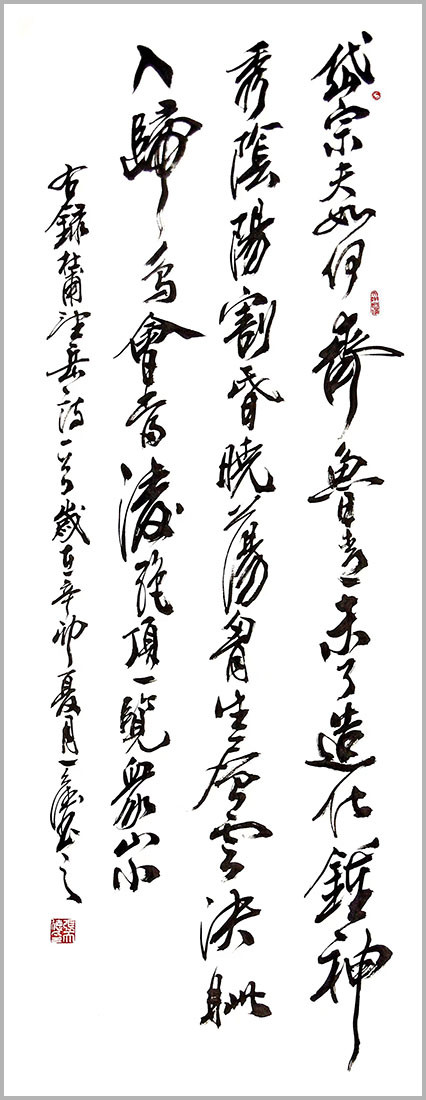 岱宗夫如何齊魯青未了造化鍾神
秀陰陽割昏曉蕩胷生層雲決眥
入歸鳥會當淩絕頂一覽眾山小
右録杜甫望岳詩一首歲在辛卯夏月書之